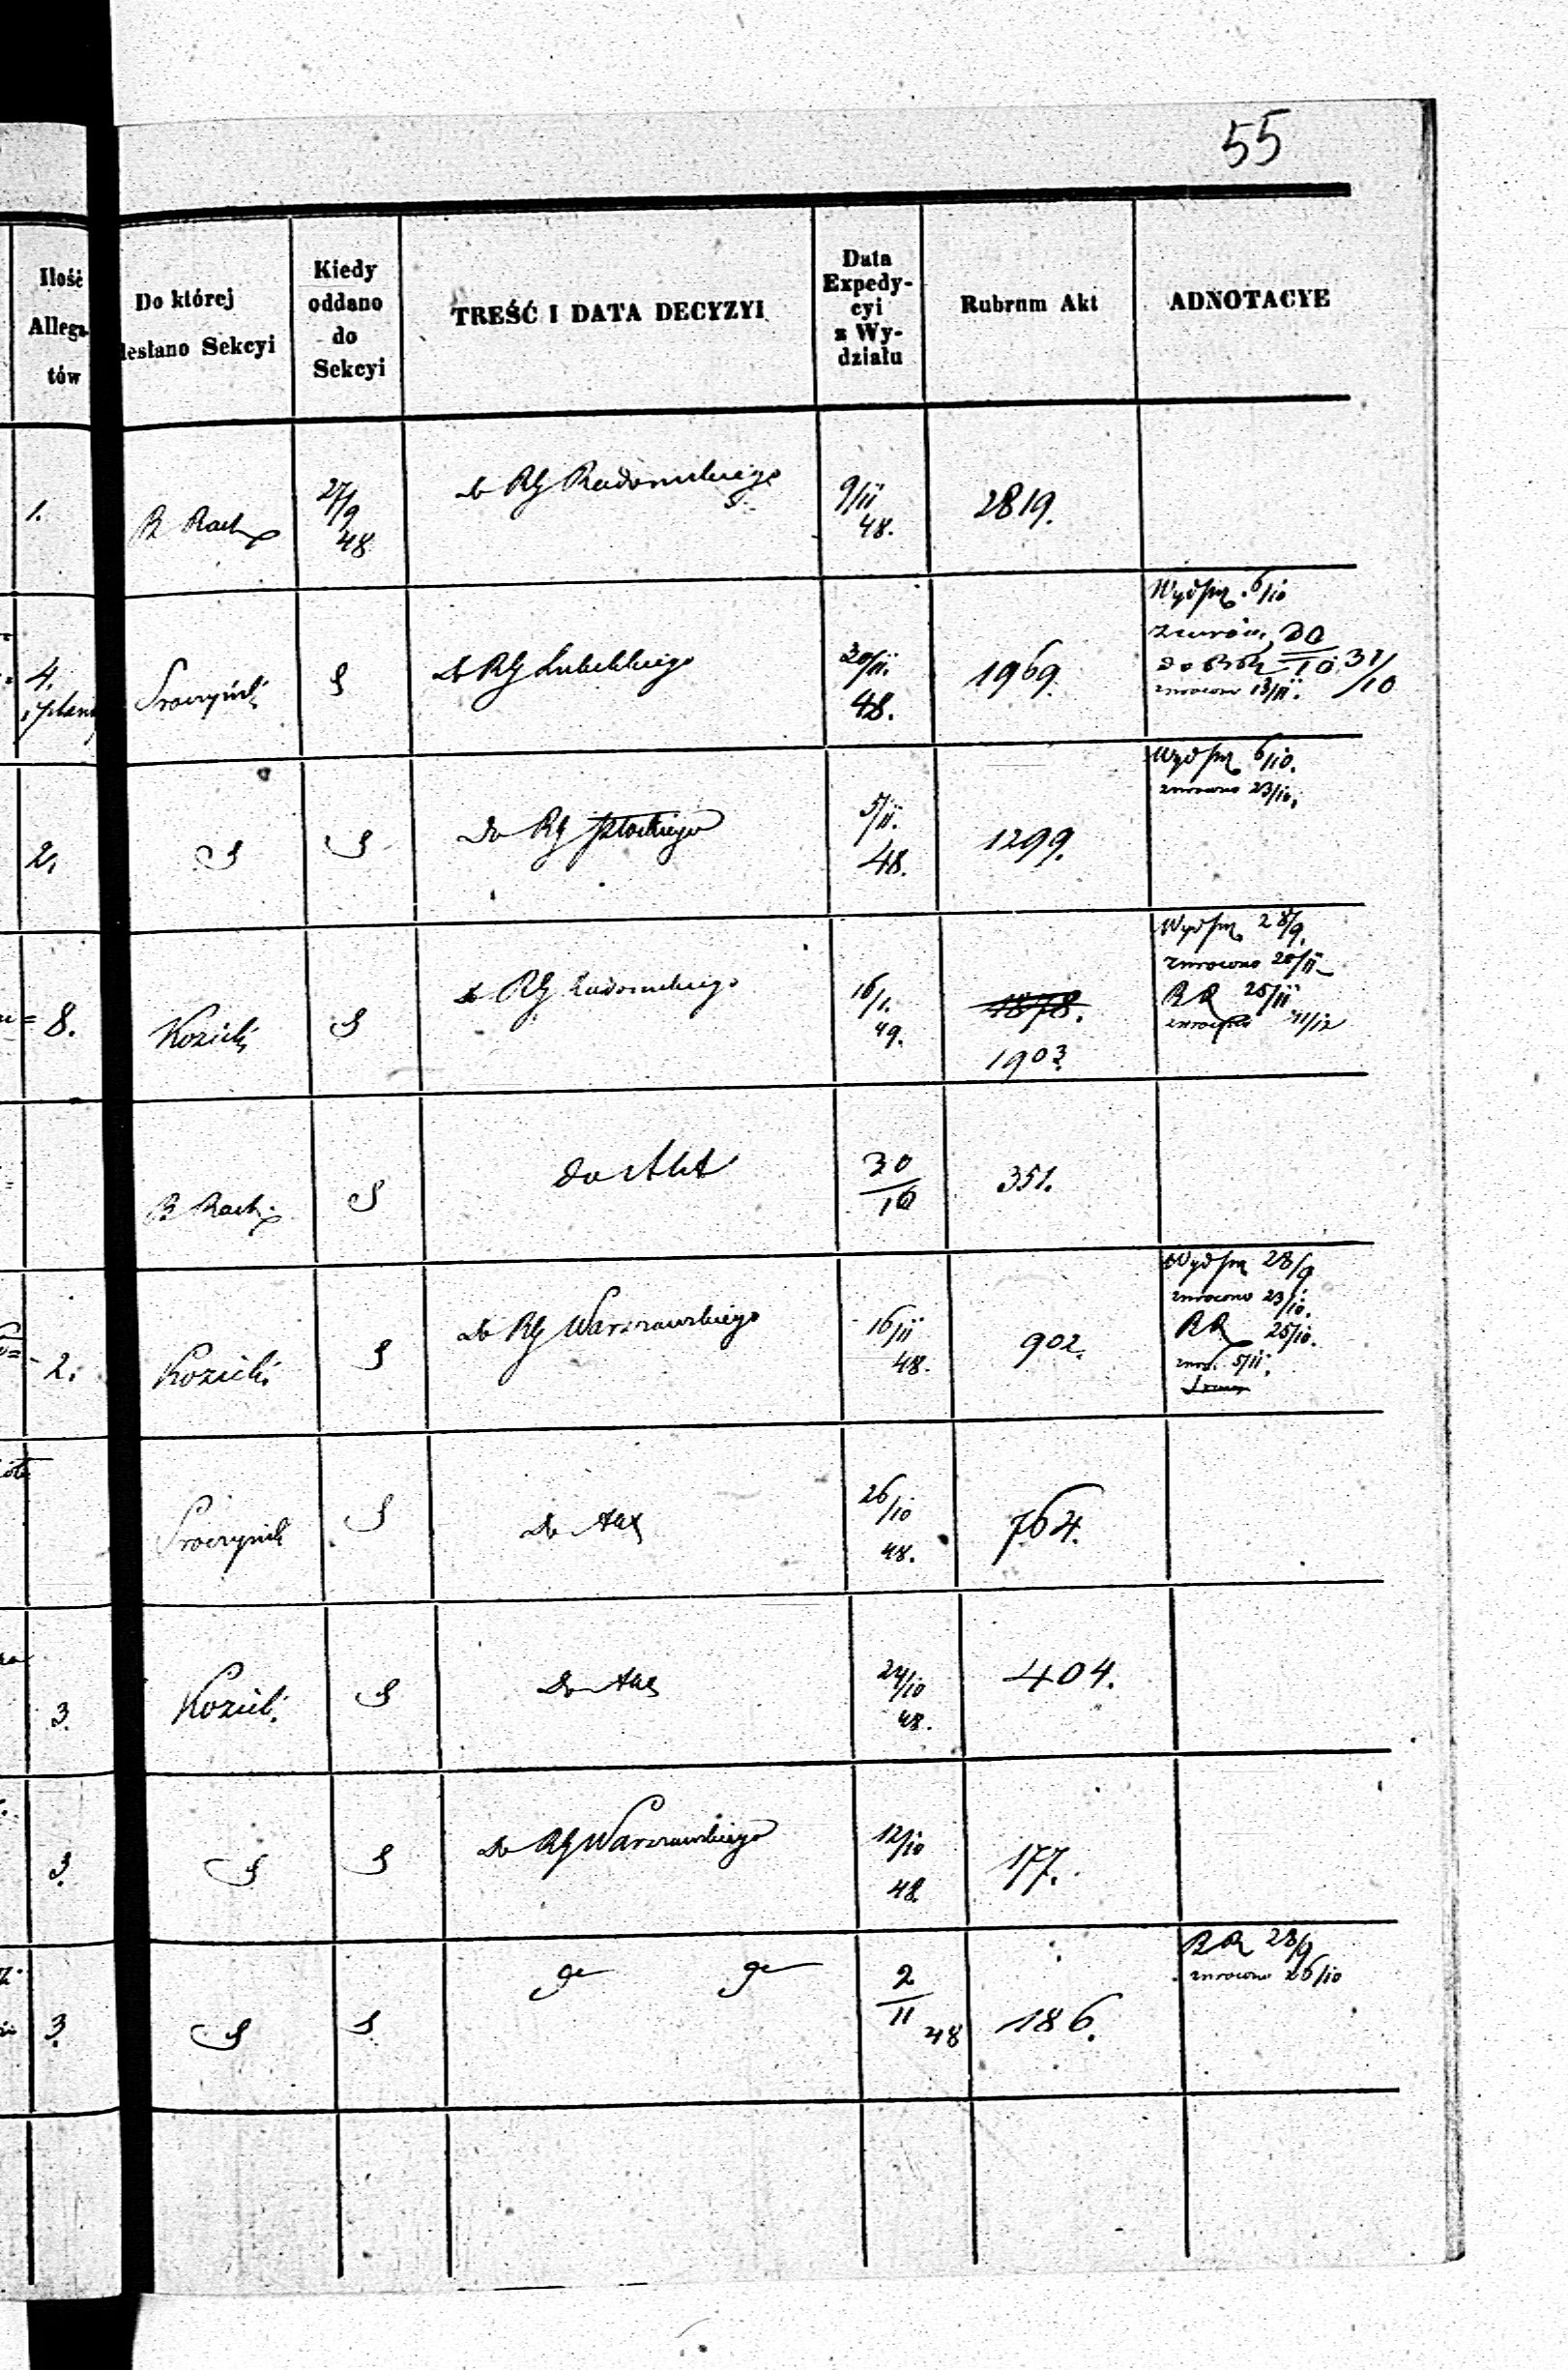 55
Ilość
Allega-
tów
Do której
desłano Sekcyi
Kiedy
oddano
do
Sekcyi
TREŚĆ I DATA DECYZYI
Data
Expedy-
cyi
z Wy-
działu
Rubrum Akt
ADNOTACYE
1.
R Rach
27/9
48
do RG Radomskiego
9/11
48.
2819.
4.
do RG Lubelskiego
20/11.
48.
1969.
6/10
30/10 31/10
zwrócono 13/11.
2,
Do RG Płockiego
5/11.
48.
1299.
6/10.
zwrócono 23/10.
8.
Kozicki
do RG Radomskiego
16/1.
49.
1878.
1903.
28/9.
zwrócono 20/11
RR 25/11
zwrócono 11/12
R Rach.
do Akt
30/10
351.
2.
Kozicki
Do RG Warszawskiego
16/11
48.
902.
28/9
zwrócono 23/10.
RR 25/10.
zwró. 5/11.
Do Akt
26/10
48.
764.
3.
Kozicki
Do Akt
24/10
48.
404.
3.
Do RG Warszawskiego
12/10
48.
177.
3.
2/11
48
186.
RR 28/9
zwrócono 26/10